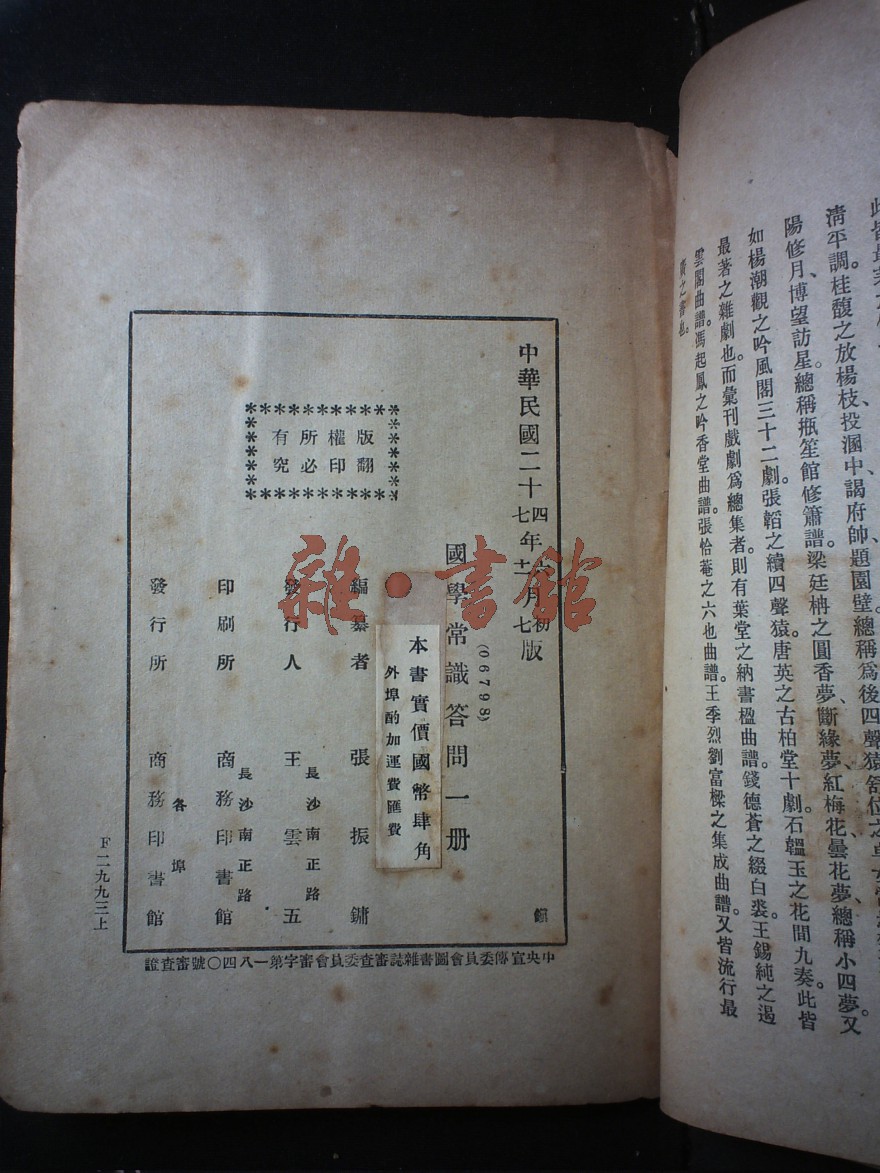 清平調。桂馥之放楊枝、投溷中、謁府帥、題園壁、總稱爲後四聲猿。舒位之卓
陽修月、博望訪星、總稱瓶笙館修簫譜。梁廷柟之圓香夢、斷緣夢、紅梅花、曇花夢、總稱小四夢。又
如楊潮觀之吟風閣三十二劇。張韜之續四聲猿。唐英之古柏堂十劇。石韞玉之花間九奏。此皆
最著之雜劇也。而彙刊戲劇爲總集者。則有葉堂之納書楹曲譜。錢德蒼之綴白裘。王錫純之遏
雲閣曲譜。馮起鳳之吟香堂曲譜。張怡菴之六也曲譜。王季烈劉富樑之集成曲譜。又皆流行最
廣之書也。
中華民國二十四年 月初版
七年十一月七版
(06798)
國學常識答問一册
本書實價國幣肆角
外埠酌加運費匯費
編纂者 張振鏞
發行人 王雲五
長沙南正路
印刷所 商務印書館
長沙南正路
發行所 商務印書館
各埠
版權所有
翻印必究
中央宣傳委員會圖書雜誌審查委員會審字第一八四〇號審查證
F二九九三上
雜·書館